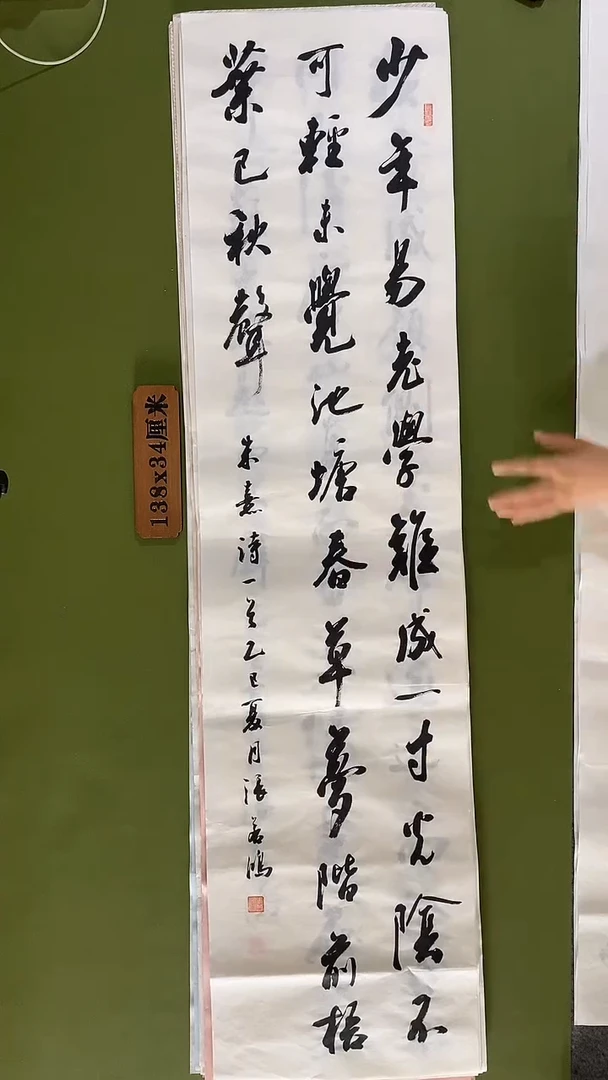 少年易老學難成一寸光陰不
可輕未覺池塘春草夢階前梧
葉已秋聲
朱熹詩一首乙巳夏月張若鴻
138x34厘米